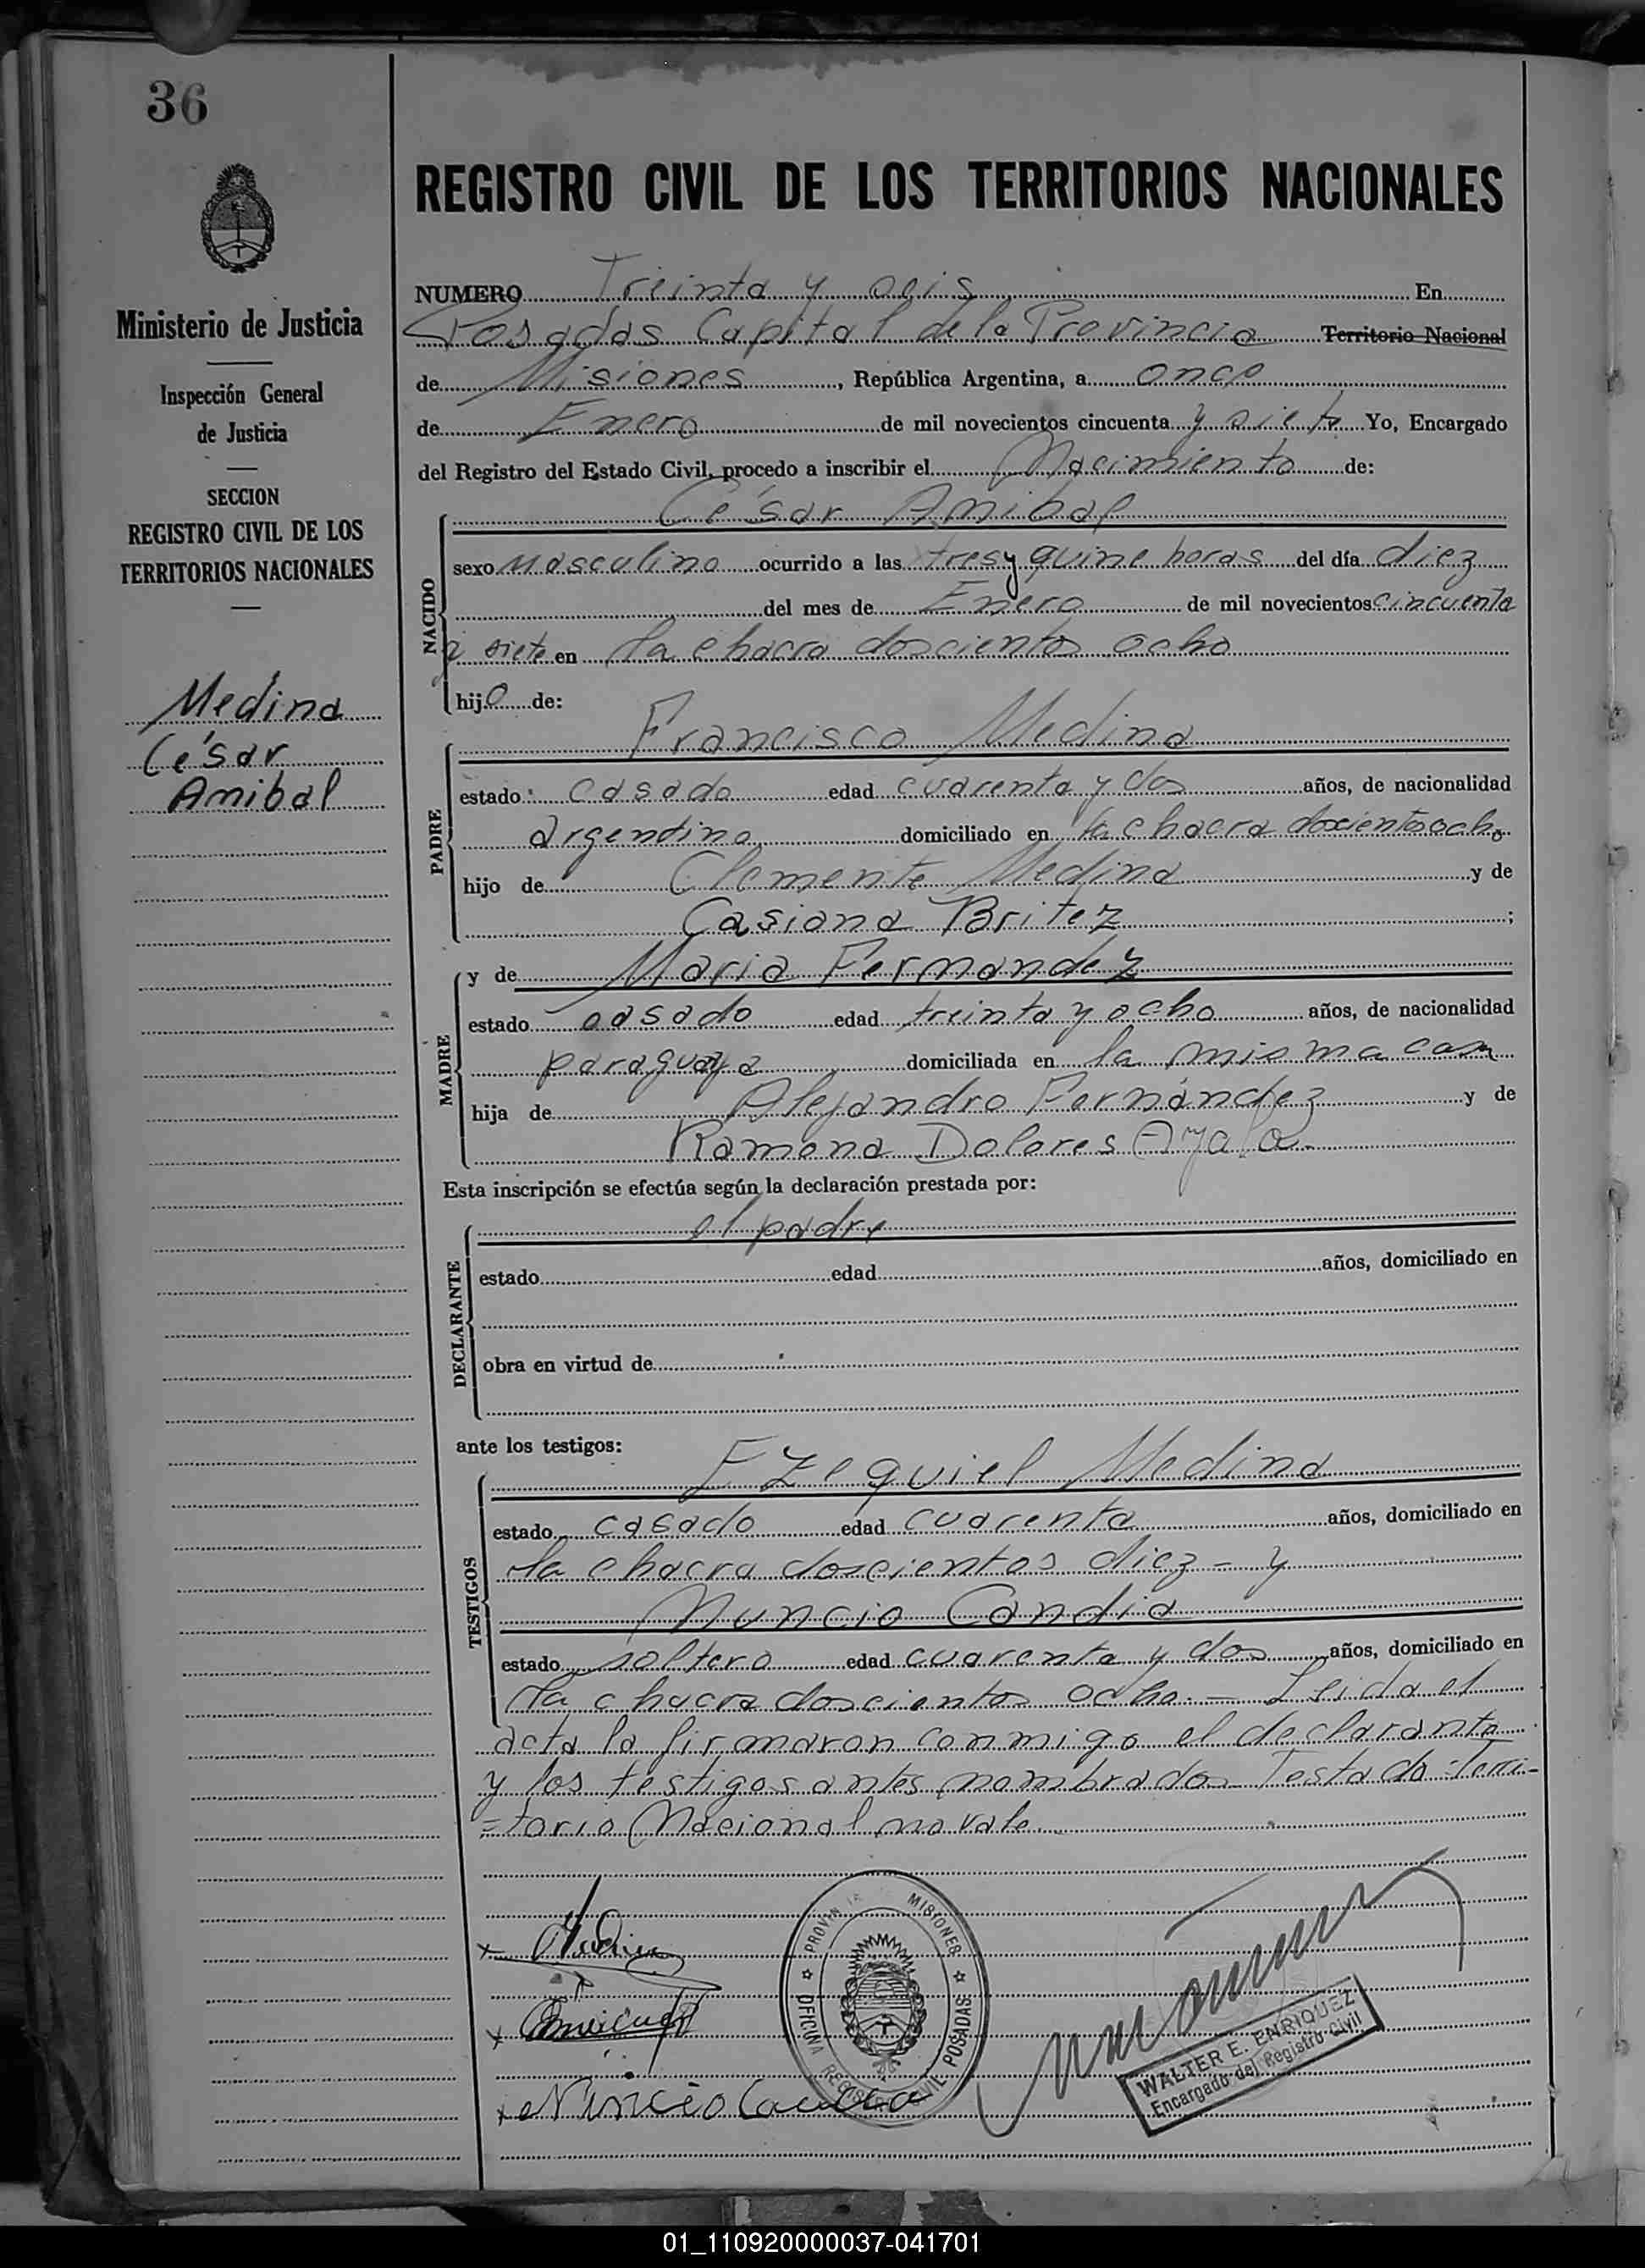 36
Ministerio de Justicia
Inspección General
de Justicia
SECCION
REGISTRO CIVIL DE LOS
TERRITORIOS NACIONALES
Medina
César
Anibal
REGISTRO CIVIL DE LOS TERRITORIOS NACIONALES
NUMERO Treinta y seis En
Posadas Capital de la Provincia Territorio Nacional
de Misiones, República Argentina, a once
de Enero de mil novecientos cincuenta y siete Yo, Encargado
del Registro del Estado Civil, procedo a inscribir el Nacimiento de:
NACIDO
César Anibal
sexo masculino ocurrido a las tres y quince horas del día diez
del mes de Enero de mil novecientos cincuenta
y siete en la chacra doscientos ocho
hijo de:
PADRE
Francisco Medina
estado casado edad cuarenta y dos años, de nacionalidad
argentina domiciliado en la chacra doscientos ocho
hijo de Clemente Medina y de
Casiana Britez;
MADRE
y de Maria Fernandez
estado casado edad treinta y ocho años, de nacionalidad
paraguaya domiciliada en la misma casa
hija de Alejandro Fernández y de
Ramona Dolores Ayala
Esta inscripción se efectúa según la declaración prestada por:
DECLARANTE
el padre
estado edad años, domiciliado en
obra en virtud de
ante los testigos:
TESTIGOS
Ezequiel Medina
estado casado edad cuarenta años, domiciliado en
la chacra doscientos diez = y
Nuncio Candia
estado soltero edad cuarenta y dos años, domiciliado en
la chacra doscientos ocho. - Leida el
acta la firmaron conmigo el declarante
y los testigos antes nombrados Testado = Terri-
=torio Nacional no vale.
PROVINCIA MISIONES
OFICINA REGISTRO CIVIL POSADAS
WALTER E. ENRIQUEZ
Encargado del Registro Civil
Nuncio Candia
01_110920000037-041701